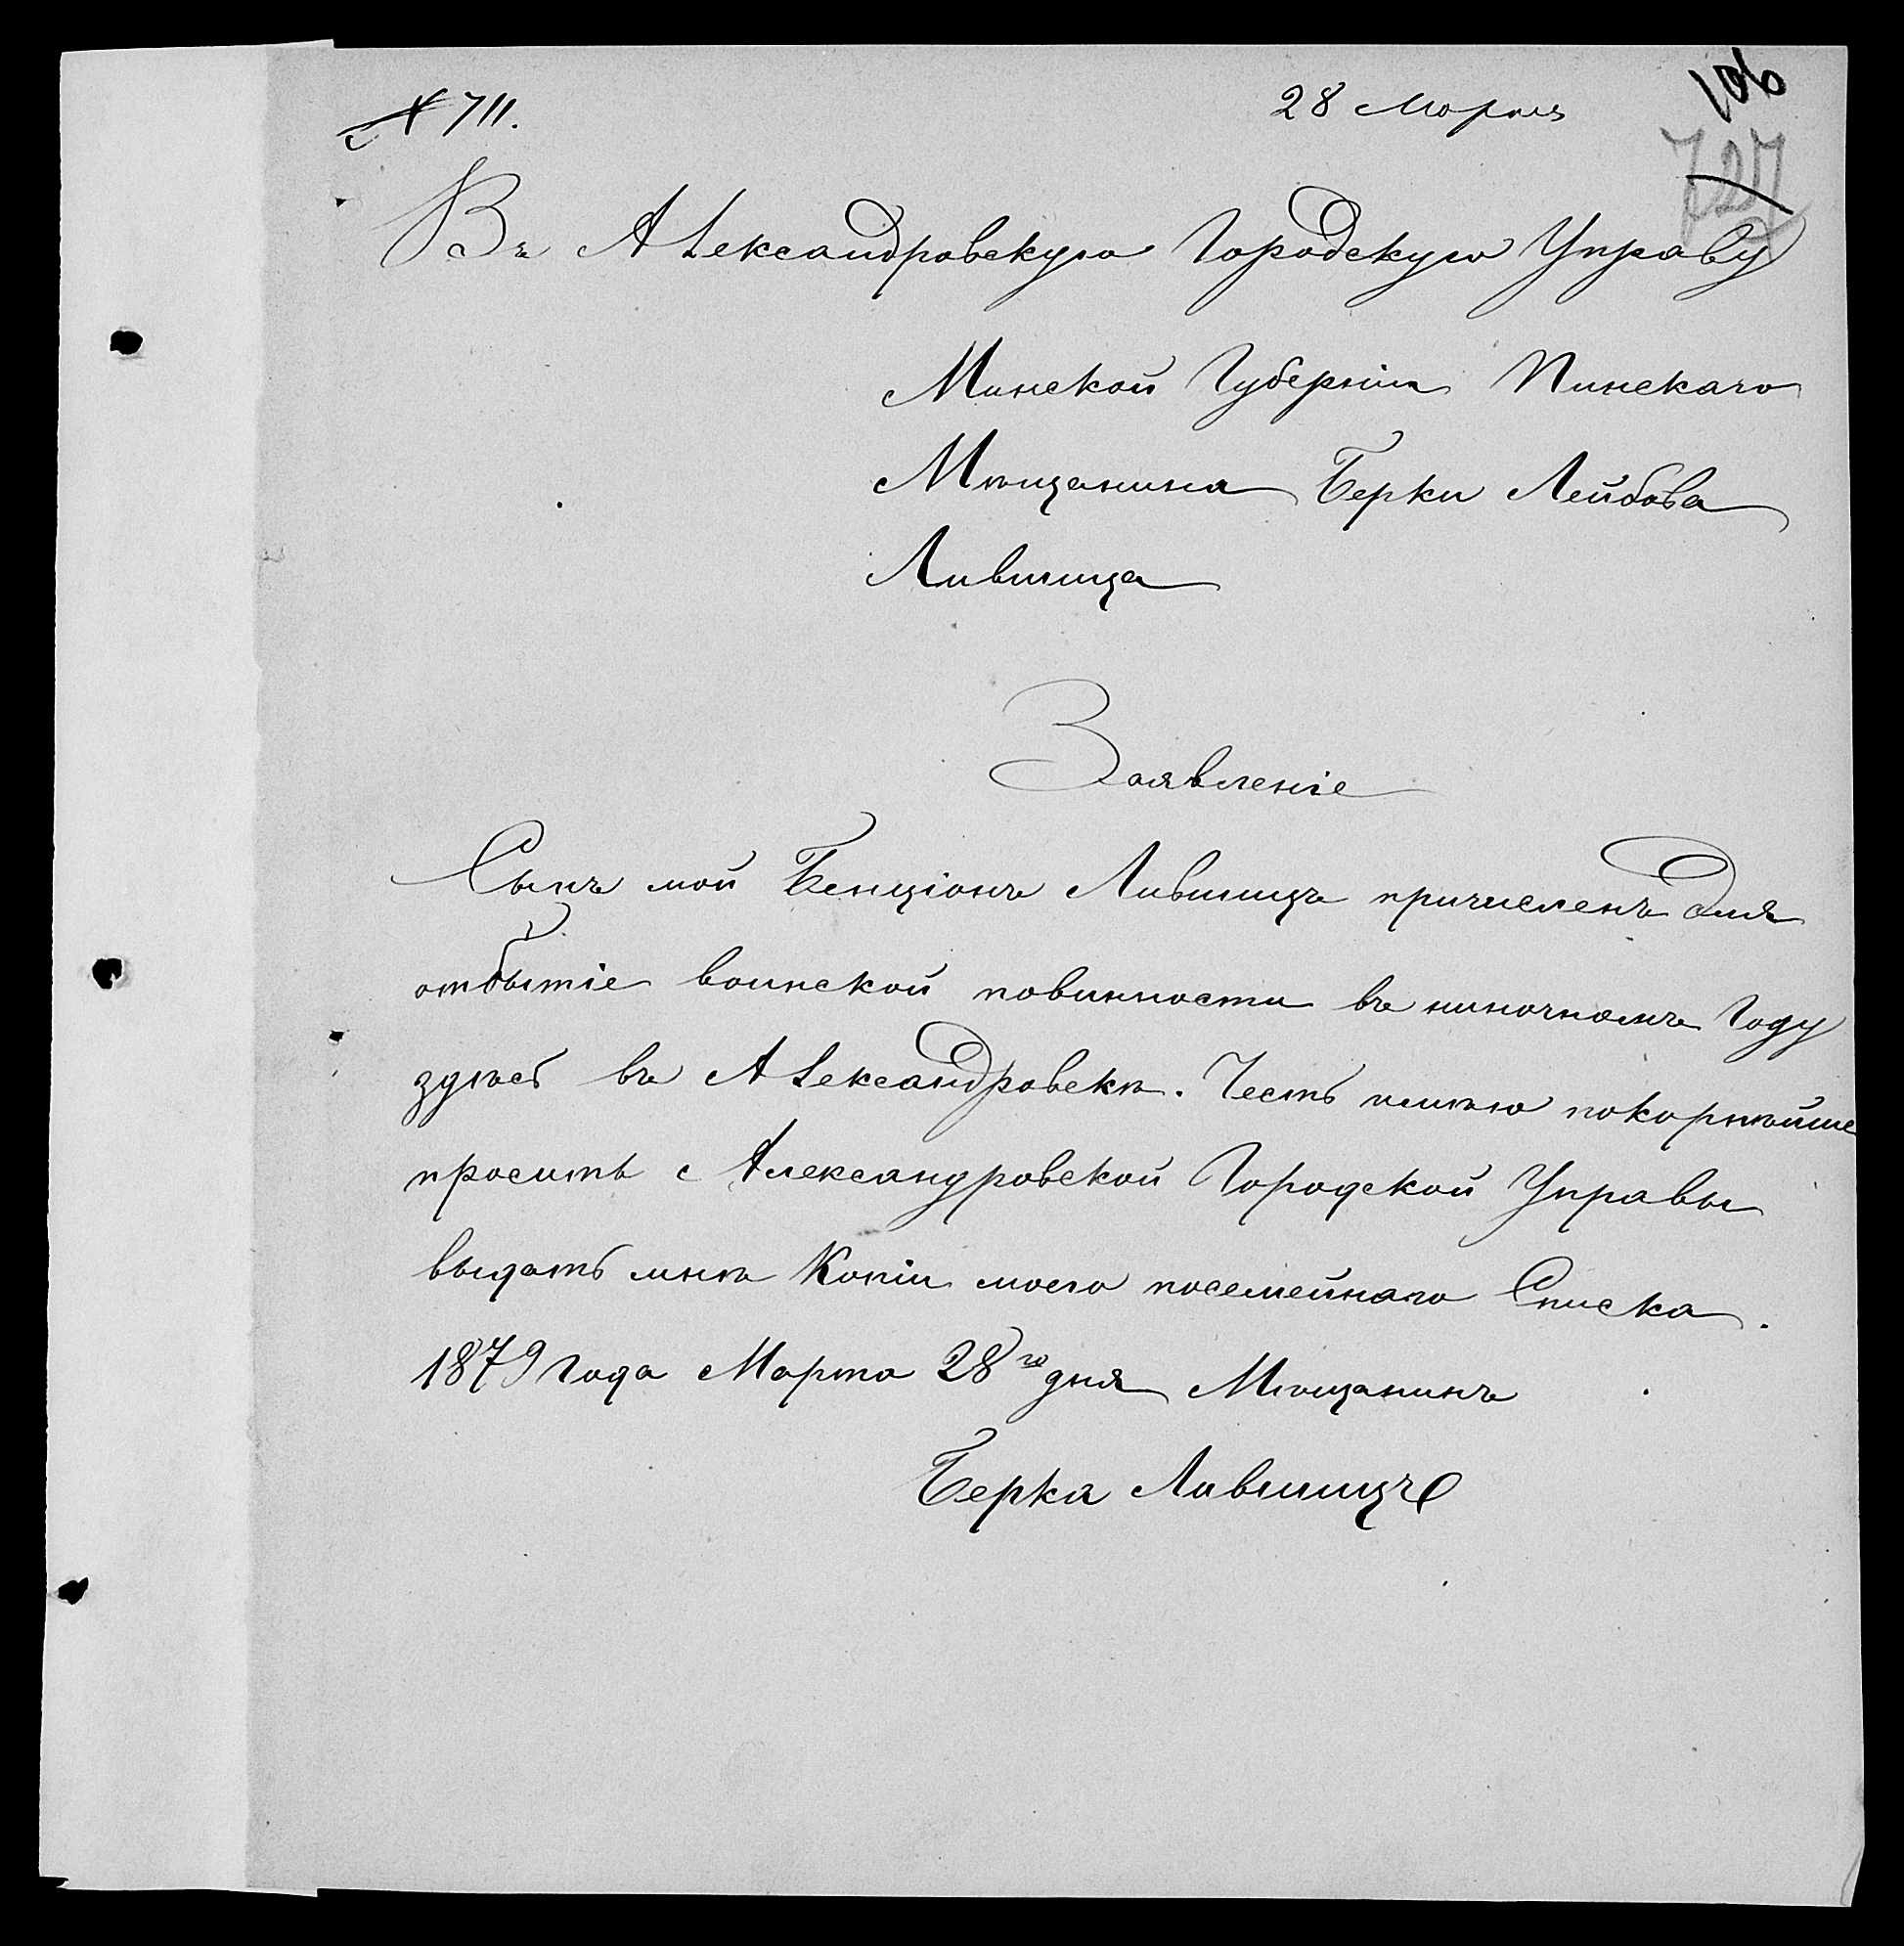 № 711.
28 Марта
106
727
Въ Александровскую Городскую Управу
Минской Губерніи Пинскаго
Мѣщанина Берки Лейбова
Лившица
Заявленіе
Сынъ мой Бенціонъ Лившицъ причисленъ для
отбытіе воинской повинности въ ниночномъ Году
здѣсь въ Александровскѣ. Честь имѣю покорнѣйше
просить с Александровской Городской Управы
выдать мнѣ Копіи моего посемейнаго Списка.
1879 Года Марта 28го дня Мѣщанинъ
Берка Лившицъ